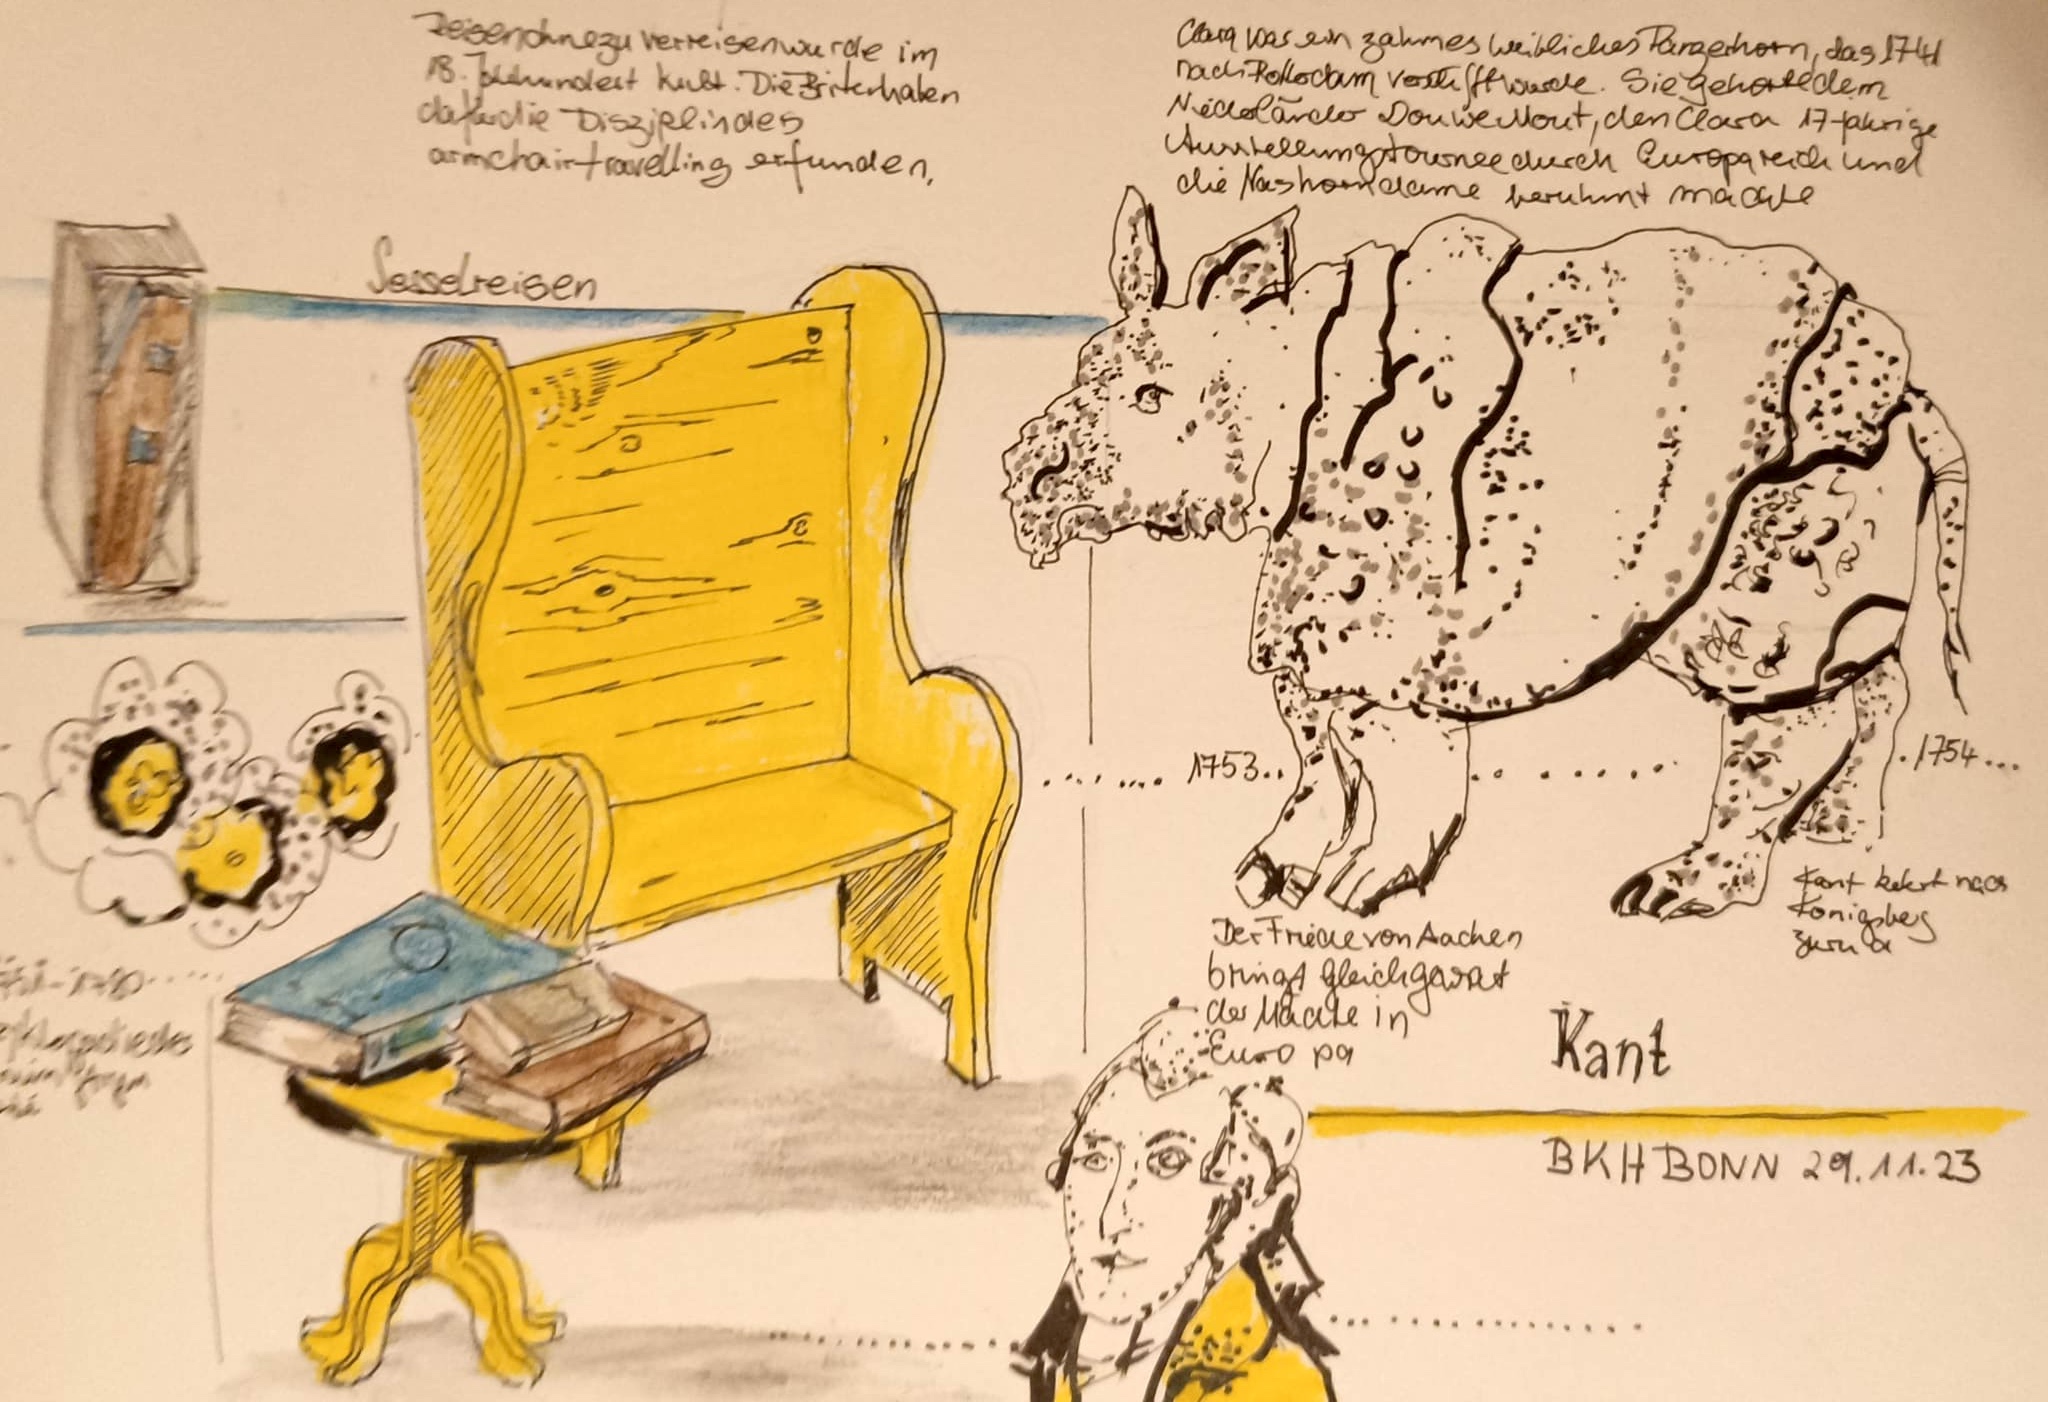 Reisen ohne zu verreisen wurde im
18. Jahrhundert Kult. Die Briten haben
dafür die Disziplin des
armchairtravelling erfunden.
Sesselreisen
Clara war ein zahmes weibliches Panzerhorn, das 1741
nach Rotterdam verschifft wurde. Sie gehörte dem
Niederländer Douwe Mout, den Clara 17-jährige
Ausstellungstournee durch Europa reich und
die Nashorndame berühmt machte
1753
1754
Der Friede von Aachen
bringt Gleichgewicht
der Mächte in
Europa
Kant kehrt nach
Königsberg
zurück
Kant
BKH BONN 29.11.23